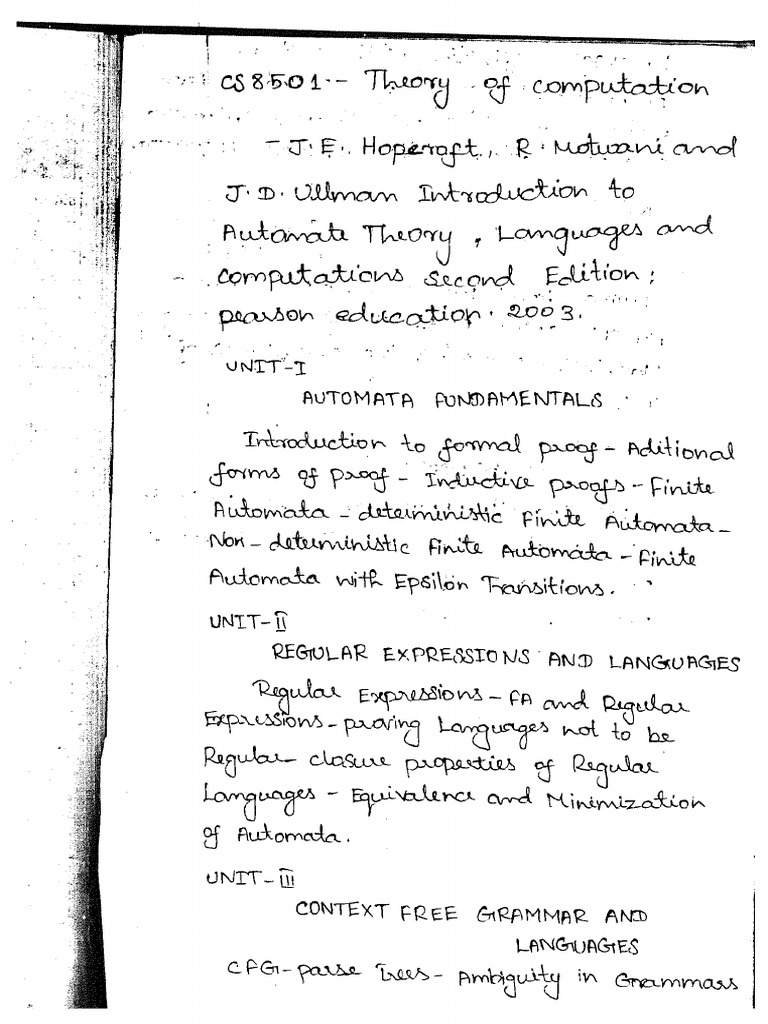 CS8501 - Theory of computation
- J. E. Hopcraft, R. Motwani and
J. D. Ullman Introduction to
Automate Theory, Languages and
computations Second Edition;
pearson education. 2003.
UNIT-I
AUTOMATA FUNDAMENTALS
Introduction to formal proof - Aditional
forms of Proof - Inductive proofs - Finite
Automata - deterministic Finite Automata -
Non - deterministic finite Automata - Finite
Automata with Epsilon Transitions.
UNIT-II
REGULAR EXPRESSIONS AND LANGUAGES
Regular Expressions - FA and Regular
Expressions - proving Languages not to be
Regular - closure properties of Regular
Languages - Equivalence and Minimization
of Automata.
UNIT-III
CONTEXT FREE GRAMMAR AND
LANGUAGES
CFG - parse Trees - Ambiguity in Grammars